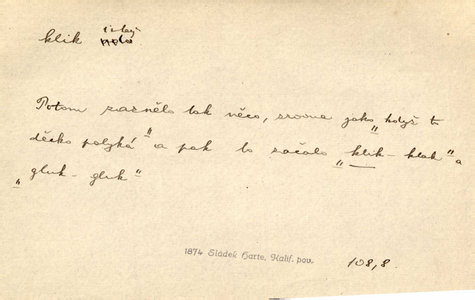 klik
Potom zaznělo tak něco, zrovna jako „když to
děcko polyká“ a pak to začalo „klik - klak“ a
„gluk - gluk“
1874 Sládek Harte, Kalif. pov. 108,8.